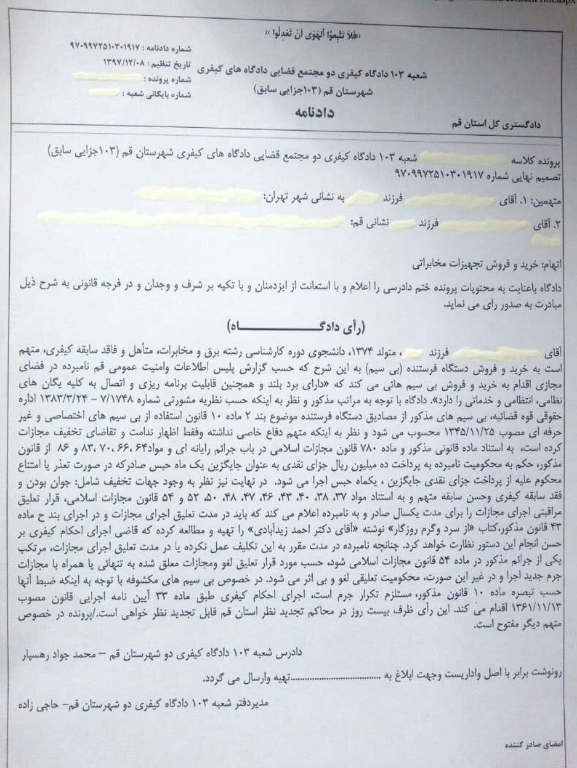 «فلا تتبعوا الهوی أن تعدلوا»
شماره دادنامه : ۹۷۰۹۹۷۲۵۱۰۳۰۱۹۱۷
تاریخ تنظیم : ۱۳۹۷/۱۲/۰۸
شماره پرونده :
شماره بایگانی شعبه :
شعبه ۱۰۳ دادگاه کیفری دو مجتمع قضایی دادگاه های کیفری
شهرستان قم (۱۰۳جزایی سابق)
دادنامه
دادگستری کل استان قم
پرونده کلاسه شعبه ۱۰۳ دادگاه کیفری دو مجتمع قضایی دادگاه های کیفری شهرستان قم (۱۰۳جزایی سابق)
تصمیم نهایی شماره ۹۷۰۹۹۷۲۵۱۰۳۰۱۹۱۷
متهمین: ۱. آقای فرزند به نشانی شهر تهران:
۲. آقای فرزند نشانی قم:
اتهام: خرید و فروش تجهیزات مخابراتی
دادگاه باعنایت به محتویات پرونده ختم دادرسی را اعلام و با استعانت از ایزدمنان و با تکیه بر شرف و وجدان و در فرجه قانونی به شرح ذیل
مبادرت به صدور رای می نماید.
(رأی دادگـــــاه)
آقای فرزند ، متولد ۱۳۷۴، دانشجوی دوره کارشناسی رشته برق و مخابرات، متأهل و فاقد سابقه کیفری، متهم
است به خرید و فروش دستگاه فرستنده (بی سیم) به این شرح که حسب گزارش پلیس اطلاعات وامنیت عمومی قم نامبرده در فضای
مجازی اقدام به خرید و فروش بی سیم هائی می کند که «دارای برد بلند و همچنین قابلیت برنامه ریزی و اتصال به کلیه یگان های
نظامی، انتظامی و خدماتی را دارد». دادگاه با توجه به مراتب مذکور و نظر به اینکه حسب نظریه مشورتی شماره ۷/۱۷۴۸ – ۱۳۸۳/۳/۲۴ اداره
حقوقی قوه قضائیه، بی سیم های مذکور از مصادیق دستگاه فرستنده موضوع بند ۲ ماده ۱۰ قانون استفاده از بی سیم های اختصاصی و غیر
حرفه ای مصوب ۱۳۴۵/۱۱/۲۵ محسوب می شود و نظر به اینکه متهم دفاع خاصی نداشته وفقط اظهار ندامت و تقاضای تخفیف مجازات
کرده است، به استناد ماده قانونی مذکور و ماده ۷۸۰ قانون مجازات اسلامی در باب جرائم رایانه ای و مواد۶۴، ۶۶، ۷۰، ۸۳ و ۸۶ از قانون
مذکور، حکم به محکومیت نامبرده به پرداخت ده میلیون ریال جزای نقدی به عنوان جایگزین یک ماه حبس صادرکه در صورت تعذر یا امتناع
محکوم علیه از پرداخت جزای نقدی جایگزین ، یکماه حبس اجرا می شود. در نهایت نیز نظر به وجود جهات تخفیف شامل: جوان بودن و
فقد سابقه کیفری وحسن سابقه متهم و به استناد مواد ۳۷، ۳۸، ۴۰، ۴۳، ۴۶، ۴۷، ۴۸، ۵۰، ۵۲ و ۵۴ قانون مجازات اسلامی، قرار تعلیق
مراقبتی اجرای مجازات را برای مدت یکسال صادر و به نامبرده اعلام می کند که باید در مدت تعلیق اجرای مجازات و در اجرای بند ح ماده
۴۳ قانون مذکور،کتاب «از سرد وگرم روزگار» نوشته «آقای دکتر احمد زیدآبادی» را تهیه و مطالعه کرده که قاضی اجرای احکام کیفری بر
حسن انجام این دستور نظارت خواهد کرد. چنانچه نامبرده در مدت مقرر به این تکلیف عمل نکرده یا در مدت تعلیق اجرای مجازات، مرتکب
یکی از جرائم مذکور در ماده ۵۴ قانون مجازات اسلامی شود، حسب مورد قرار تعلیق لغو ومجازات معلق شده به تنهائی یا همراه با مجازات
جرم جدید اجرا و در غیر این صورت، محکومیت تعلیقی لغو و بی اثر می شود. در خصوص بی سیم های مکشوفه با توجه به اینکه ضبط آنها
حسب تبصره ماده ۱۰ قانون مذکور، مستلزم تکرار جرم است، اجرای احکام کیفری طبق ماده ۳۳ آیین نامه اجرایی قانون مصوب
۱۳۶۱/۱۱/۱۳ اقدام می کند. این رأی ظرف بیست روز در محاکم تجدید نظر استان قم قابل تجدید نظر خواهی است./پرونده در خصوص
متهم دیگر مفتوح است.
دادرس شعبه ۱۰۳ دادگاه کیفری دو شهرستان قم – محمد جواد رهسپار
رونوشت برابر با اصل واداریست وجهت ابلاغ به ........................................تهیه وارسال می گردد.
مدیردفتر شعبه ۱۰۳ دادگاه کیفری دو شهرستان قم- حاجی زاده
امضای صادر کننده